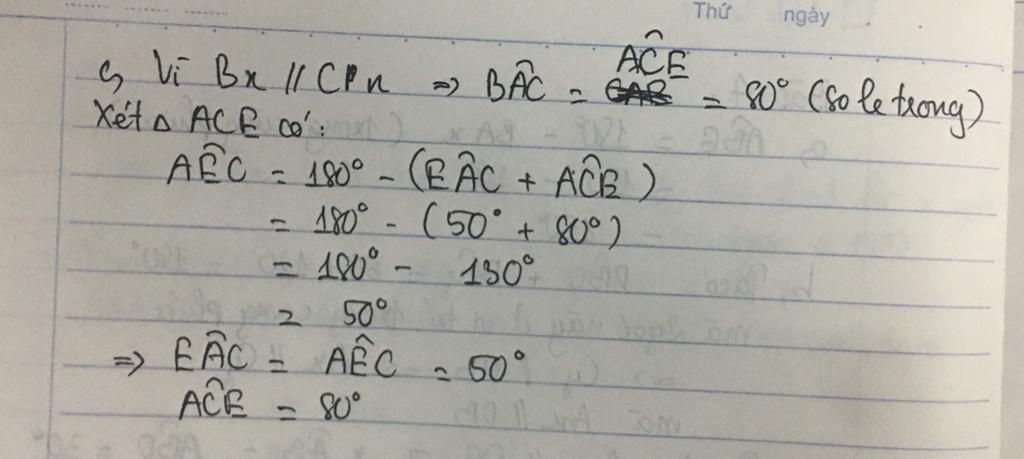 Thứ ngày
c, Vì Bx // CPn => BÂC = AĈE = 80° (so le trong)
Xét △ ACE có:
AÊC = 180° - (EÂC + AĈE)
= 180° - (50° + 80°)
= 180° - 130°
= 50°
=> EÂC = AÊC = 50°
AĈE = 80°